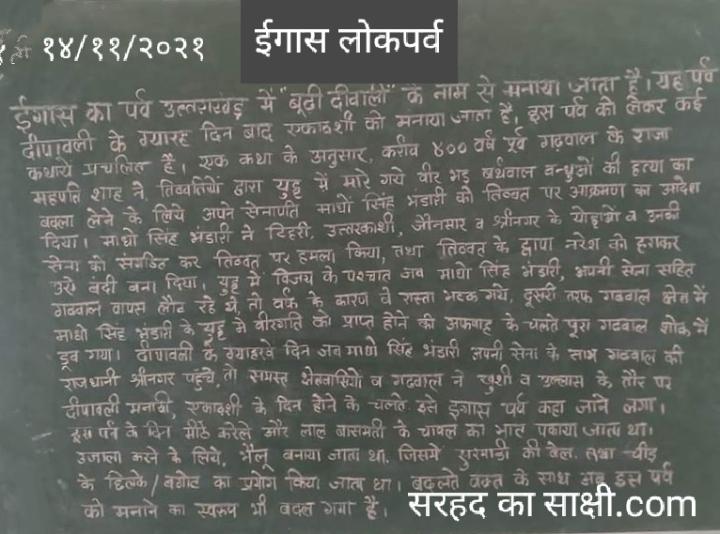 १४/११/२०२१
ईगास लोकपर्व
ईगास का पर्व उत्तराखंड में "बूढी दीवाली" के नाम से मनाया जाता है। यह पर्व
दीपावली के ग्यारह दिन बाद एकादशी को मनाया जाता है, इस पर्व को लेकर कई
कथायें प्रचलित हैं। एक कथा के अनुसार, करीब ४०० वर्ष पूर्व गढवाल के राजा
महपति शाह ने, तिब्बतियों द्वारा युद्ध में मारे गये वीर भड़ बर्थवाल बन्धुओं की हत्या का
बदला लेने के लिये अपने सेनापति माधो सिंह भंडारी को तिब्बत पर आक्रमण का आदेश
दिया। माधो सिंह भंडारी ने टिहरी, उत्तरकाशी, जौनसार व श्रीनगर के योद्धाओं व उनकी
सेना को संगठित कर तिब्बत पर हमला किया, तथा तिब्बत के द्वापा नरेश को हराकर
उसे बंदी बना दिया। युद्ध में विजय के पश्चात जब माधो सिंह भंडारी, अपनी सेना सहित
गढवाल वापस लौट रहे थे, तो बर्फ के कारण वे रास्ता भटक गये, दूसरी तरफ गढवाल क्षेत्र में
माधो सिंह भंडारी के युद्ध में वीरगति को प्राप्त होने की अफवाह के चलते पूरा गढवाल शोक में
डूब गया। दीपावली के ग्यारहवे दिन जब माधो सिंह भंडारी अपनी सेना के साथ गढवाल की
राजधानी श्रीनगर पहुंचे, तो समस्त क्षेत्रवासियों व गढवाल ने खुशी व उल्लास के तौर पर
दीपावली मनायी, एकादशी के दिन होने के चलते इसे इगास पर्व कहा जाने लगा।
इस पर्व के दिन मीठे करेले और लाल बासमती के चावल का भात पकाया जाता था।
उजाला करने के लिये, भैलू बनाया जाता था, जिसमें सुरमाडी की बेल, तथा चीड़
के छिलके/बगोट का प्रयोग किया जाता था। बदलते वक्त के साथ अब इस पर्व
को मनाने का स्वरूप भी बदल गया है।
सरहद का साक्षी.com